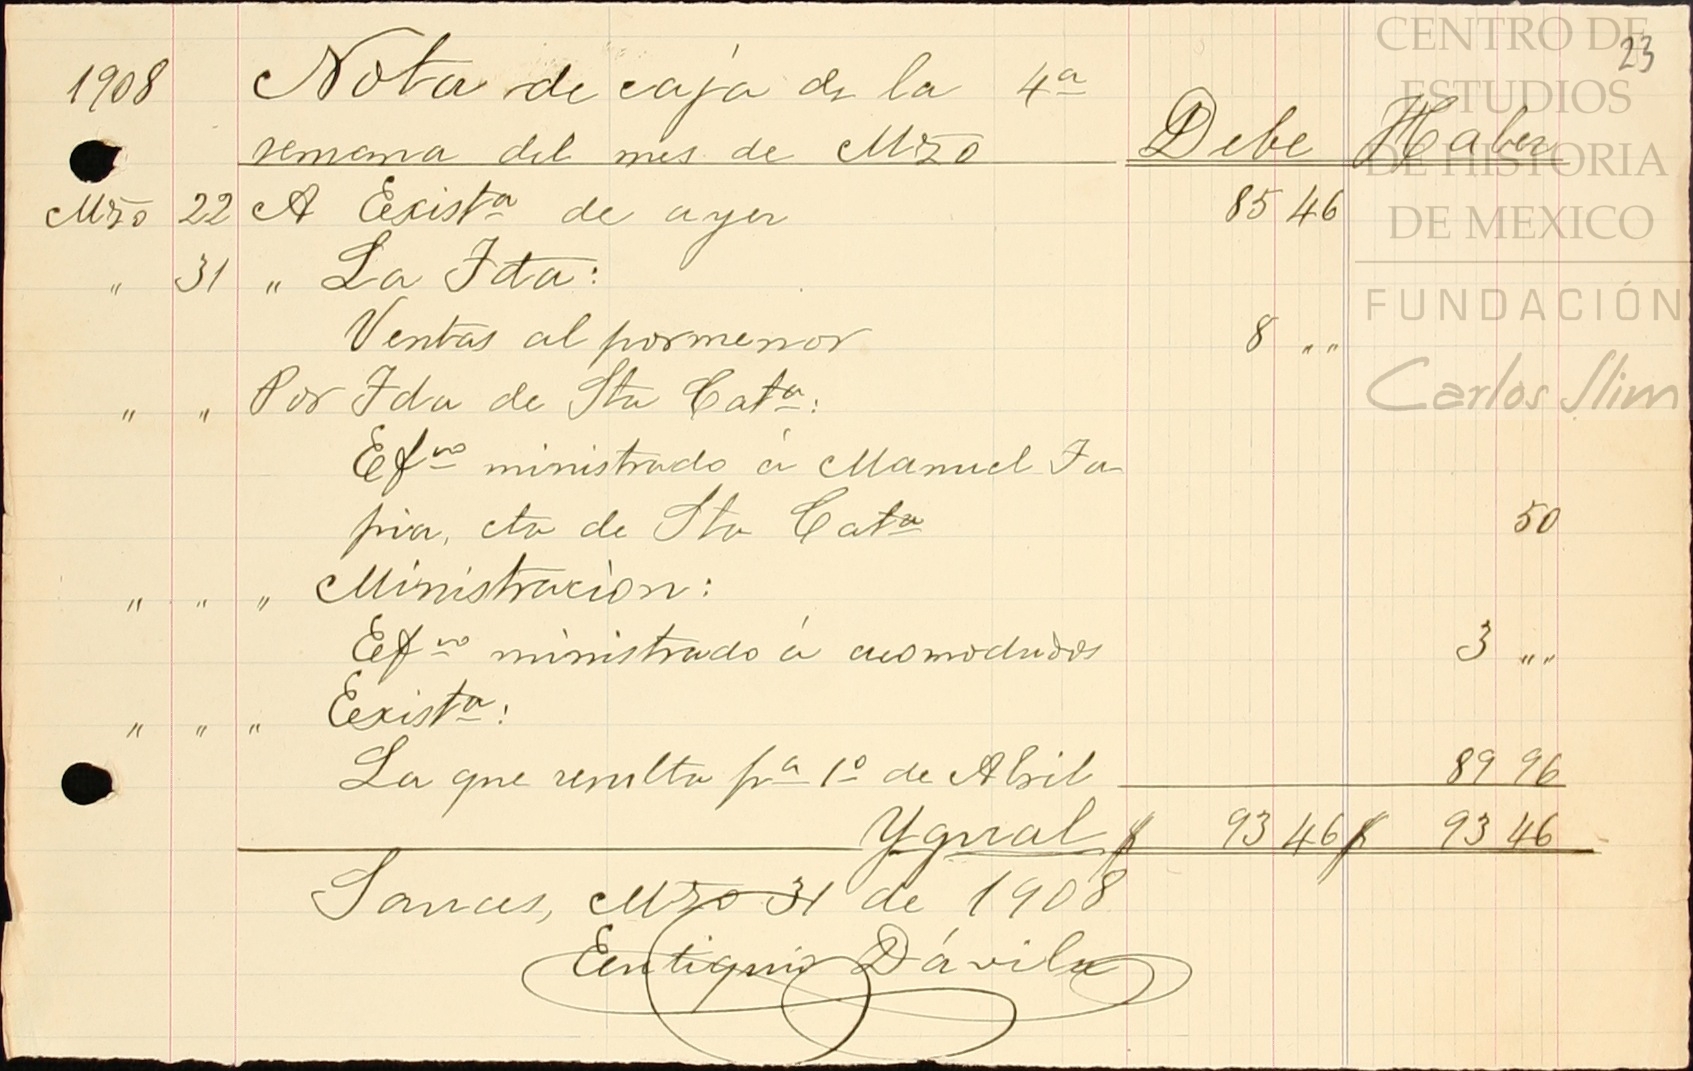 CENTRO DE
ESTUDIOS
DE HISTORIA
DE MEXICO
FUNDACIÓN
Carlos Slim
23
1908 Nota de caja de la 4ª
semana del mes de Mzo Debe Haber
Mzo 22 A Existª de ayer 85 46
" 31 " La Fda:
Ventas al pormenor 8 ""
" " Por Fda de Sta Catª:
Efvo ministrado á Manuel Ta
pia, cta de Sta Catª 50
" " " Ministracion:
Efvo ministrado á acomodados 3 ""
" " " Existª:
La que resulta pª 1º de Abril 89 96
Ygual $ 93 46 $ 93 46
Sauces, Mzo 31 de 1908
Eutiquio Dávila